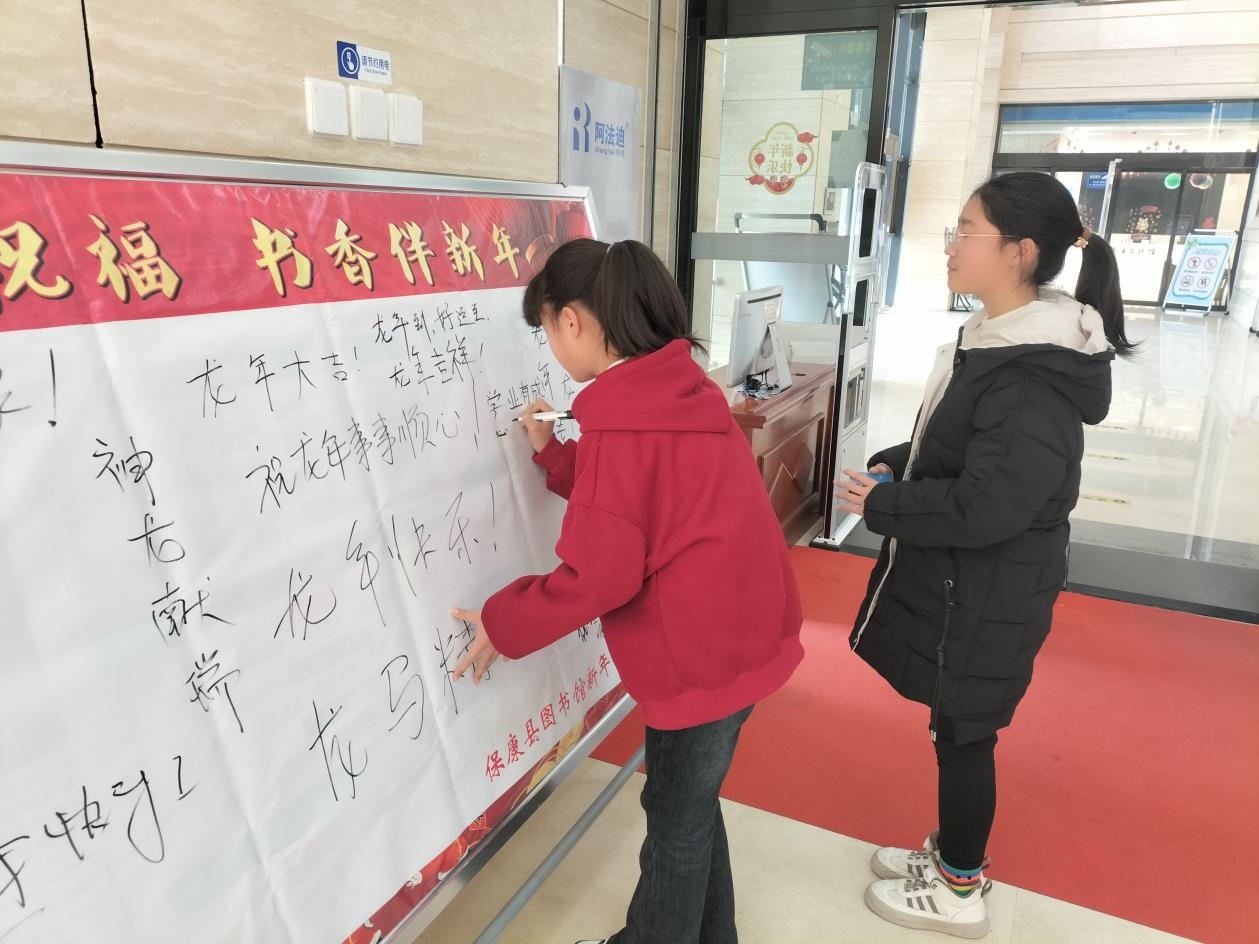 请节约用电
阿法迪
新年快乐
祝福 书香伴新年
龙年到,好运至
龙年大吉!
龙年吉祥!
学业有成
祝龙年事事顺心!
神龙献瑞
龙年快乐!
龙马精
保康县图书馆新年